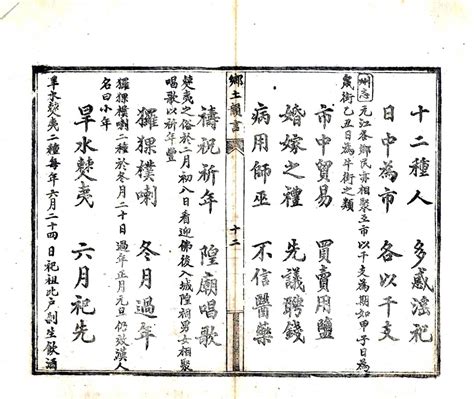 十二種人 多惑滛祀
日中為市 各以干支
州志 元江各鄉民亦相聚立市以干支為期如甲子日為
街乙丑日為牛街之類
市中貿易 買賣用鹽
婚嫁之禮 先議聘錢
病用師巫 不信醫藥
鄉土韻言 十二
禱祝祈年 隍廟唱歌
僰夷之俗於月初八日看迎佛後入城隍祠男女相聚
唱歌以祈年豐
玀猓樸喇 冬月過年
玀猓樸喇二種於冬月二十日過年正月元旦仍效漢人
名曰小年
旱水僰夷 六月祀先
旱水僰夷二種每年六月二十四日祀祖比户割生飲酒